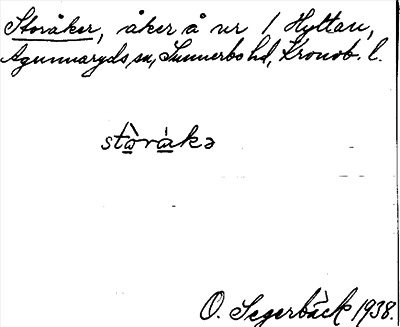 Storåker, åker å nr 1 Hyttan,
Agunnaryds sn, Sunnerbo hd, Kronob. l.
stòràkə
O. Segerbäck 1938.